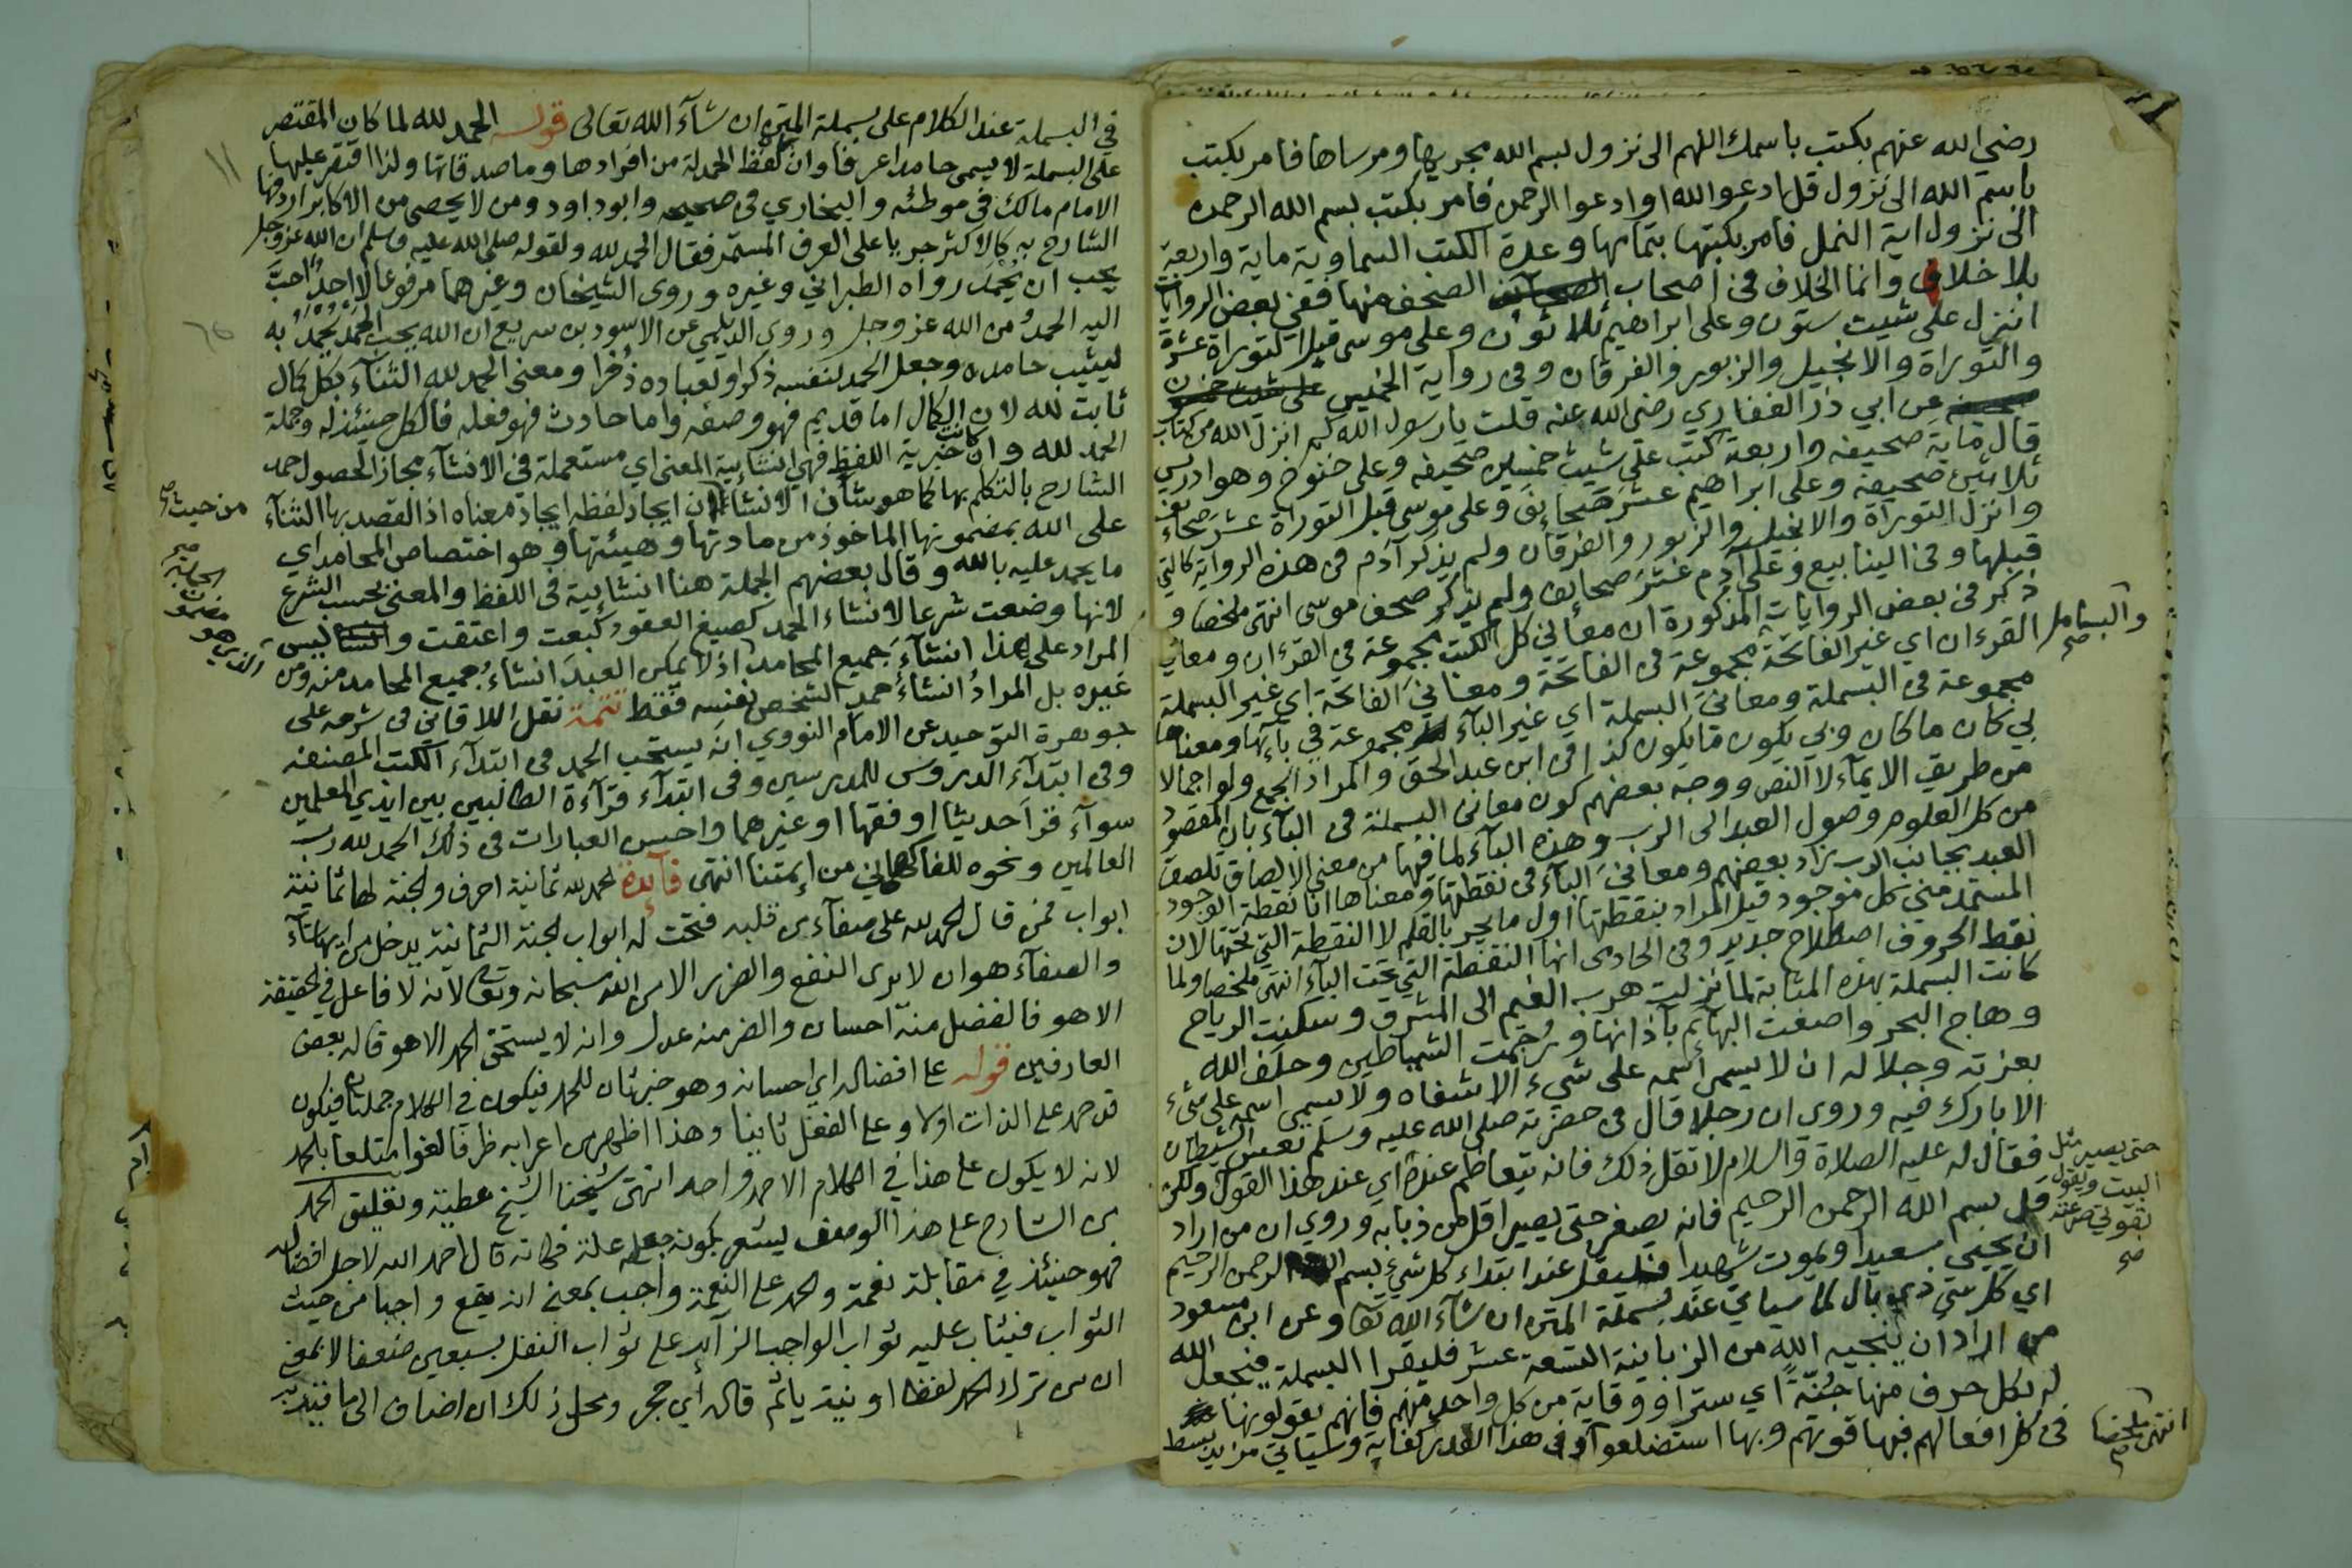 رضي الله عنهم بكتب باسمك اللهم الى نزول بسم الله مجريها ومرساها فامر بكتب
باسم الله الى نزول قل ادعوا الله او ادعوا الرحمن فامر بكتب بسم الله الرحمن
الى نزول اية النمل فامر بكتبها بتمامها وعدة الكتب السماوية ماية واربعة
بلا خلاف وانما الخلاف في اصحاب الصحف منها ففي بعض الروايات
انزل على شيث ستون وعلى ابراهيم ثلاثون وعلى موسى قبل التوراة عشرة
والتوراة والانجيل والزبور والفرقان وفي رواية
عن ابي ذر الغفاري رضي الله عنه قلت يا رسول الله كم انزل الله من كتاب
قال ماية صحيفة واربعة كتب على شيث خمسين صحيفة وعلى خنوخ وهو ادريس
ثلاثين صحيفة وعلى ابراهيم عشر صحائف وعلى موسى قبل التوراة عشر صحائف
وانزل التوراة والانجيل والزبور والفرقان ولم يذكر آدم في هذه الرواية كالتي
قبلها وفي الينابيع وعلى آدم عشر صحائف ولم يذكر صحف موسى انتهى ملخصا و
ذكر في بعض الروايات المذكورة ان معاني كل الكتب مجموعة في القرءان ومعاني
القرءان اي غير الفاتحة مجموعة في الفاتحة ومعاني الفاتحة اي غير البسملة
والبسامل صح
مجموعة في البسملة ومعاني البسملة اي غير الباء مجموعة في بائها ومعناها
بي كان ما كان وبي يكون ما يكون كذا في ابن عبد الحق والمراد الجمع ولو اجمالا
من طريق الايماء لا النص ووجه بعضهم كون معاني البسملة في الباء بان المقصود
من كل العلوم وصول العبد الى الرب وهذه الباء لما فيها من معنى الالصاق تلصق
العبد بجانب الرب زاد بعضهم ومعاني الباء في نقطتها ومعناها انا نقطة الوجود
المستمد مني كل موجود قيل المراد بنقطتها اول ما يجر بالقلم لا النقطة التي تحتها لان
نقط الحروف اصطلاح جديد وفي الحاوى انها النقطة التي تحت الباء انتهى ملخصا ولما
كانت البسملة بهذه المثابة لما نزلت هرب الغيم الى المشرق وسكنت الرياح
وهاج البحر واصغت البهائم بآذانها ورجمت الشياطين وحلف الله
بعزته وجلاله ان لا يسمى اسمه على شيء الا شفاه ولا يسمى اسمه على شيء
الا بارك فيه وروى ان رجلا قال في حضرته صلى الله عليه وسلم تعس الشيطان
فقال له عليه الصلاة والسلام لا تقل ذلك فانه يتعاظم عنده اي عند هذا القول ولكن
حتى يصير مثل البيت ويقول بقوتي صرعته صح
قل بسم الله الرحمن الرحيم فانه يصغر حتى يصير اقل من ذبابه وروي ان من اراد
ان يحيى سعيدا ويموت شهيدا فليقل عند ابتداء كل شيء بسم الله الرحمن الرحيم
اي كل شي ذي بال لما سياتي عند بسملة المتن ان شاء الله تعا وعن ابن مسعود
من اراد ان ينجيه الله من الزبانية التسعة عشر فليقرا البسملة فيجعل الله
له بكل حرف منها جُنّةً اي سترا ووقاية من كل واحد منهم فانهم يقولونها
في كل افعالهم فبها قوتهم وبها استضلعوا وفي هذا القدر كفاية وسياتي مزيد بسط
انتهى ملخصا صح
في البسملة عند الكلام على بسملة المتن ان شاء الله تعالى قوله الحمد لله لما كان المقتصر
على البسملة لا يسمى حامدا عرفا وان لفظ الحمدلة من افرادها وما صدقاتها ولذا اقتصر عليها
الامام مالك في موطئه والبخاري في صحيحه وابو داود ومن لا يحصى من الاكابر اردفها
الشارح به كالاكثر جريا على العرف المستمر فقال الحمد لله ولقوله صلى الله عليه وسلم ان الله عز وجل
يحب ان يُحمَدَ رواه الطبراني وغيره وروى الشيخان وغيرهما مرفوعا لا احدٌ احبَّ
اليه الحمدُ من الله عز وجل وروى الديلمي عن الاسود بن سريع ان الله يحب الحمد يُحمد به
ليثيب حامده وجعل الحمد لنفسه ذكرا ولعباده ذُخرا ومعنى الحمد لله الثناء بكل كمال
ثابت لله لان الكمال اما قديم فهو وصفه واما حادث فهو فعله فالكل حينئذ له وجملة
الحمد لله وان كانت خبرية اللفظ فهي انشائية المعنى اي مستعملة في الانشاء مجازا لحصول حمد
الشارح بالتكلم بها كما هو شان الانشاء لان ايجاد لفظه ايجاد معناه اذ القصد بها الثناء
من حيث صح
على الله بمضمونها الماخوذ من مادتها وهيئتها وهو اختصاص المحامد اي
ما يحمد عليه بالله وقال بعضهم الجملة هنا انشائية في اللفظ والمعنى بحسب الشرع
لانها وضعت شرعا لانشاء الحمد كصيغ العقود كبعت واعتقت وليس
المراد على هذا انشاءَ جميع المحامد اذ لا يمكن العبدَ انشاءُ جميع المحامد منه ومن
الذي هو مضمون
غيره بل المرادُ انشاءُ حمدِ الشخص نفسِه فقط تتمة نقل اللاقاني في شرحه على
جوهرة التوحيد عن الامام النووي انه يستحب الحمد في ابتداء الكتب المصنفه
وفي ابتداء الدروس للمدرسين وفي ابتداء قراءة الطالبين بين ايدي المعلمين
سواء قرا حديثا او فقها او غيرهما واحسن العبارات في ذلك الحمد لله رب
العالمين ونحوه للفاكهاني من ائمتنا انتهى فائدة الحمد لله ثمانية احرف والجنة لها ثمانية
ابواب فمن قال الحمد لله على صفاء من قلبه فتحت له ابواب الجنة الثمانية يدخل من ايها شاء
والصفاء هو ان لا يرى النفع والضرر الا من الله سبحانه وتعا لانه لا فاعل في الحقيقة
الا هو فالفضل منه احسان والضر منه عدل وانه لا يستحق الحمد الا هو قاله بعض
العارفين قوله على افضاله اي احسانه وهو خبر ثان للحمد فيكون في الكلام جملتان فيكون
قد حمد على الذات اولا وعلى الفعل ثانيا وهذا اظهر من اعرابه ظرفا لغوا متعلقا بالحمد
لانه لا يكون على هذا في الكلام الا حمد واحد انتهى شيخنا الشيخ عطية وتعليق الحمد
من الشارح على هذا الوصف يشعر بكونه علة فكانه قال احمد الله لاجل افضاله
فهو حينئذ في مقابلة نعمة والحمد على النعمة واجب بمعنى انه يقع واجبا من حيث
الثواب فيثاب عليه ثواب الواجب الزائد على ثواب النفل بسبعين ضعفا لا بمعنى
ان من ترك الحمد لفظا او نية ياثم قاله ابي حجر ومحل ذلك ان اضاف الى ما